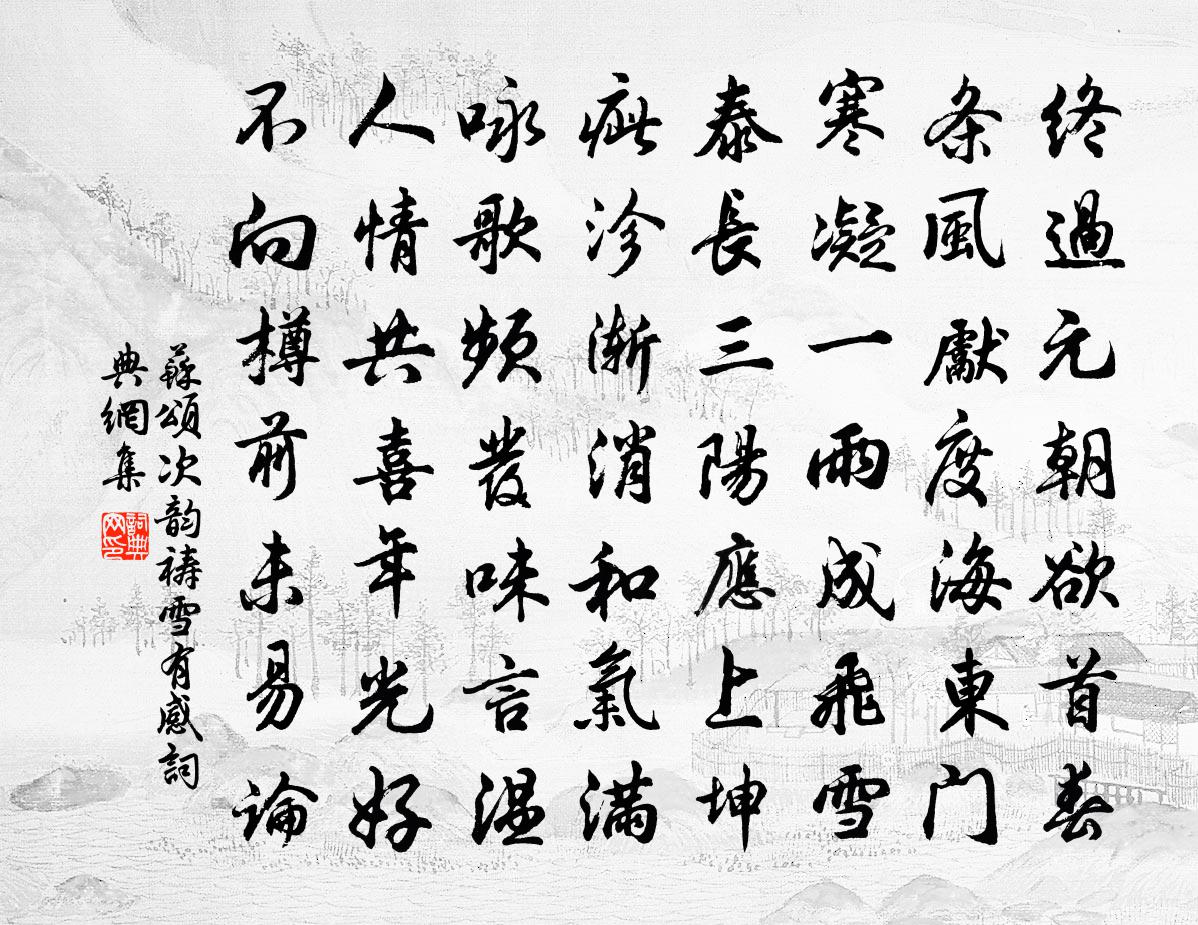 终過元朝欲首春
条風獻度海東门
寒凝一雨成飛雪
泰長三陽應上坤
疵沴渐消和氣满
咏歌频發味言温
人情共喜年光好
不向樽前未易論
蘇頌次韵祷雪有感詞
典網集
詞典
网印